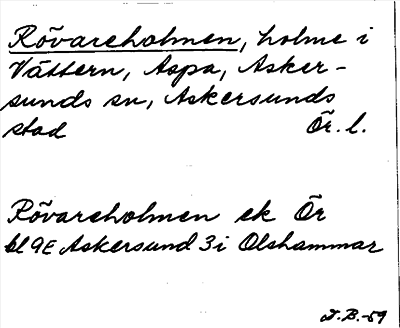 Rövareholmen, holme i
Vättern, Aspa, Asker-
sunds sn, Askersunds
stad Ör. l.
Rövareholmen ek Ör
bl 9E Askersund 3i Olshammar
J.B.-59